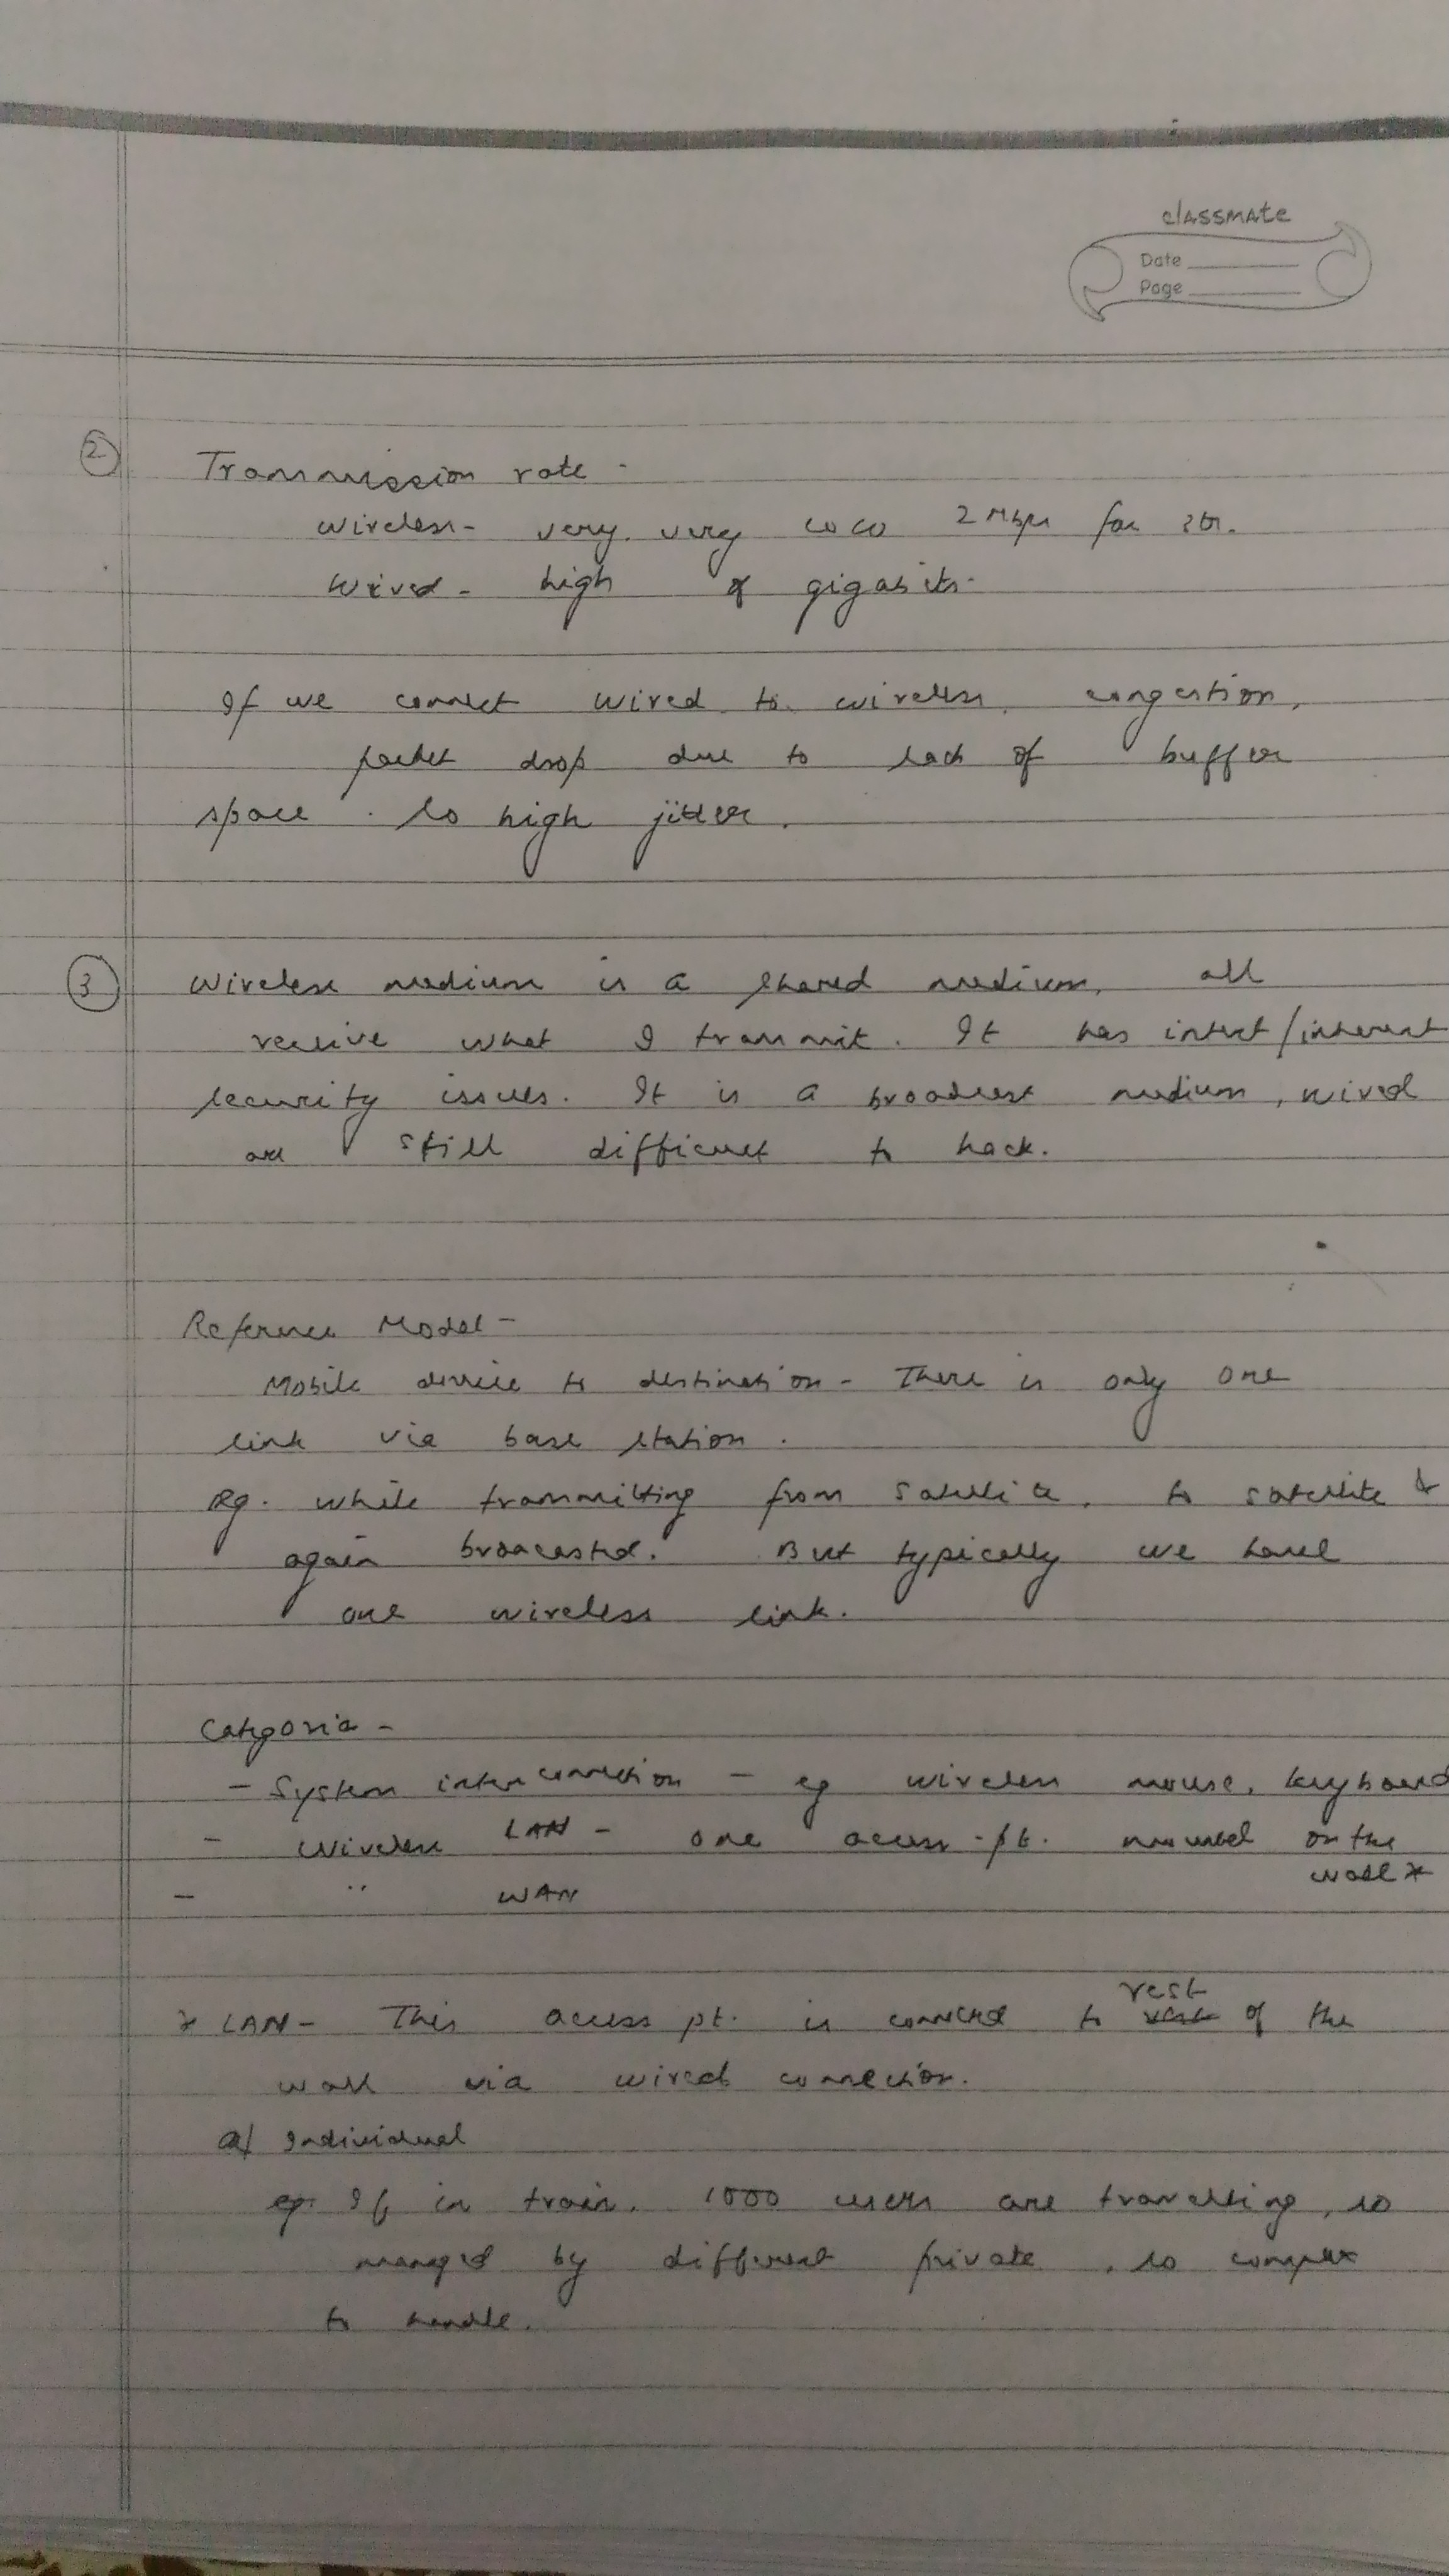 classmate
Date
Page
2 Transmission rate -
Wireless - very, very low 2 Mbps for 3G.
Wired - high of gigabits.
If we connect wired to wireless, congestion,
packet drop due to lack of buffer
space. So high jitter.
3 Wireless medium is a shared medium, all
receive what I transmit. It has intact/inherent
security issues. It is a broadcast medium, wired
are still difficult to hack.
Reference Model -
Mobile device to destination - There is only one
link via base station.
Eg. while transmitting from satellite, to satellite &
again broacasted. But typically we have
one wireless link.
Categories -
- System interconnection - eg wireless mouse, keyboard
- Wireless LAN - one access-pt. mounted on the
wall *
- " WAN
* LAN - This access pt. is connected to rest of the
wall via wired connection.
a/ Individual
eg. If in train, 1000 users are travelling, so
managed by different private, so complex
to handle.